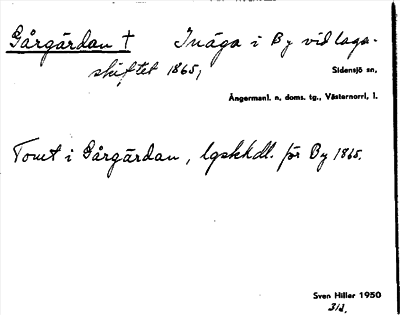 Gårgärdan † Inäga i By vid laga-
skiftet 1865,
Sidensjö sn,
Ångermanl. n, doms. tg., Västernorrl, l.
Tomt i Gårgärdan, lgskkdl. för By 1865.
Sven Hiller 1950